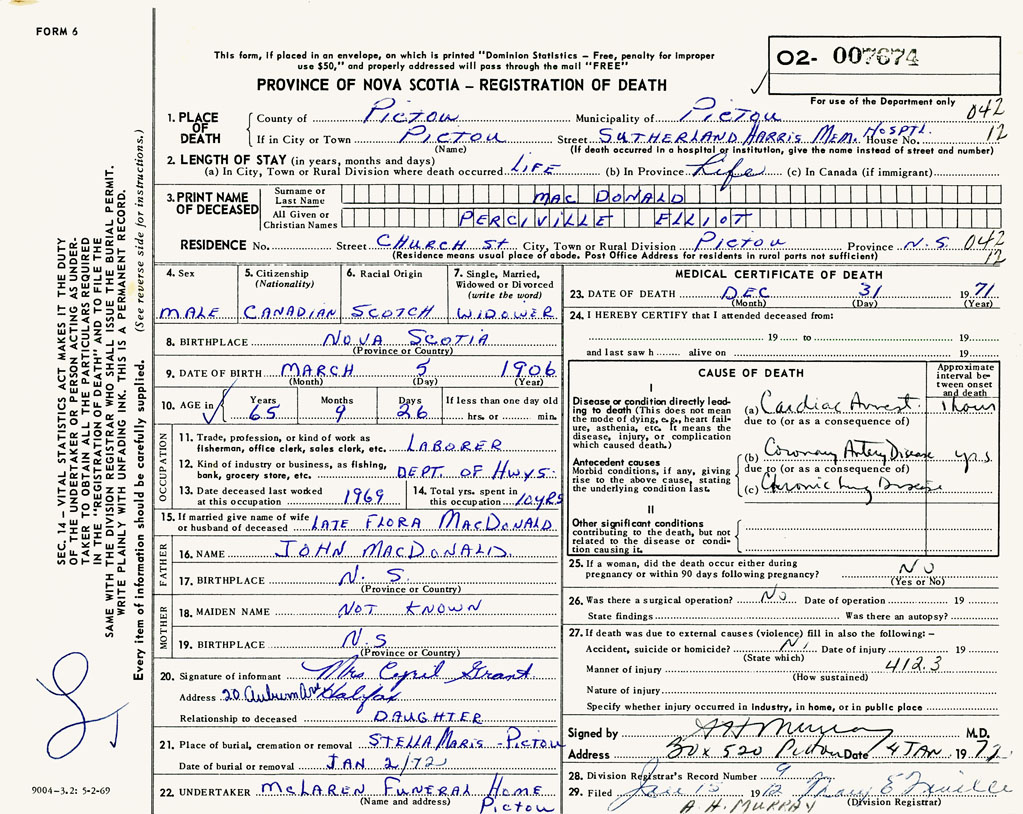 FORM 6
This form, if placed in an envelope, on which is printed "Dominion Statistics – Free, penalty for improper
use $50," and properly addressed will pass through the mail "FREE"
PROVINCE OF NOVA SCOTIA – REGISTRATION OF DEATH
02- 007674
For use of the Department only
SEC. 14 – VITAL STATISTICS ACT MAKES IT THE DUTY
OF THE UNDERTAKER OR PERSON ACTING AS UNDER-
TAKER TO OBTAIN ALL THE PARTICULARS REQUIRED
IN THE "REGISTRATION OF DEATH" AND TO FILE THE
SAME WITH THE DIVISION REGISTRAR WHO SHALL ISSUE THE BURIAL PERMIT.
WRITE PLAINLY WITH UNFADING INK. THIS IS A PERMANENT RECORD.
Every item of information should be carefully supplied. (See reverse side for instructions.)
1. PLACE OF DEATH County of Pictou Municipality of Pictou 042
If in City or Town PICTOU Street SUTHERLAND HARRIS MEM. HOSPTL. House No. 12
(Name) (If death occurred in a hospital or institution, give the name instead of street and number)
2. LENGTH OF STAY (in years, months and days)
(a) In City, Town or Rural Division where death occurred LIFE (b) In Province Life (c) In Canada (if immigrant)
3. PRINT NAME OF DECEASED Surname or Last Name MAC DONALD
All Given or Christian Names PERCIVILLE ELLIOT
RESIDENCE No. Street CHURCH St City, Town or Rural Division PICTOU Province N.S. 042
(Residence means usual place of abode. Post Office Address for residents in rural parts not sufficient) 12
4. Sex MALE
5. Citizenship (Nationality) CANADIAN
6. Racial Origin SCOTCH
7. Single, Married, Widowed or Divorced (write the word) WIDOWER
8. BIRTHPLACE NOVA SCOTIA
(Province or Country)
9. DATE OF BIRTH MARCH 5 1906
(Month) (Day) (Year)
10. AGE in Years 65 Months 9 Days 26 If less than one day old hrs. or min.
OCCUPATION
11. Trade, profession, or kind of work as
fisherman, office clerk, sales clerk, etc. LABORER
12. Kind of industry or business, as fishing,
bank, grocery store, etc. DEPT. OF HWYS.
13. Date deceased last worked at this occupation 1969
14. Total yrs. spent in this occupation 10 YRS
15. If married give name of wife
or husband of deceased LATE FLORA MACDONALD
FATHER
16. NAME JOHN MACDONALD.
17. BIRTHPLACE N. S.
(Province or Country)
MOTHER
18. MAIDEN NAME NOT KNOWN
19. BIRTHPLACE N.S
(Province or Country)
20. Signature of informant Mrs Cyril Grant
Address 20 Auburn Ave Halifax
Relationship to deceased DAUGHTER
21. Place of burial, cremation or removal STELLA MARIS - PICTOU
Date of burial or removal JAN 2/72
22. UNDERTAKER McLAREN FUNERAL HOME
(Name and address) Pictou
9004-3.2: 5-2-69
MEDICAL CERTIFICATE OF DEATH
23. DATE OF DEATH DEC 31 1971
(Month) (Day) (Year)
24. I HEREBY CERTIFY that I attended deceased from:
19 to 19
and last saw h alive on 19
CAUSE OF DEATH
Approximate interval between onset and death
I
Disease or condition directly leading to death (This does not mean the mode of dying, e.g., heart failure, asthenia, etc. It means the disease, injury, or complication which caused death.)
(a) Cardiac Arrest. 1 hour
due to (or as a consequence of)
Antecedent causes
Morbid conditions, if any, giving rise to the above cause, stating the underlying condition last.
(b) Coronary Artery Disease yrs
due to (or as a consequence of)
(c) Chronic Lung Disease
II
Other significant conditions
contributing to the death, but not
related to the disease or condition causing it.
25. If a woman, did the death occur either during
pregnancy or within 90 days following pregnancy? NO
(Yes or No)
26. Was there a surgical operation? No Date of operation 19
State findings Was there an autopsy?
27. If death was due to external causes (violence) fill in also the following: –
Accident, suicide or homicide? Date of injury 19
(State which)
Manner of injury 412.3
(How sustained)
Nature of injury
Specify whether injury occurred in industry, in home, or in public place
Signed by A H Murray M.D.
Address Box 520 Pictou Date 4 JAN. 1972
28. Division Registrar's Record Number 9
29. Filed Jan 15 1972
A. H. MURRAY (Division Registrar)